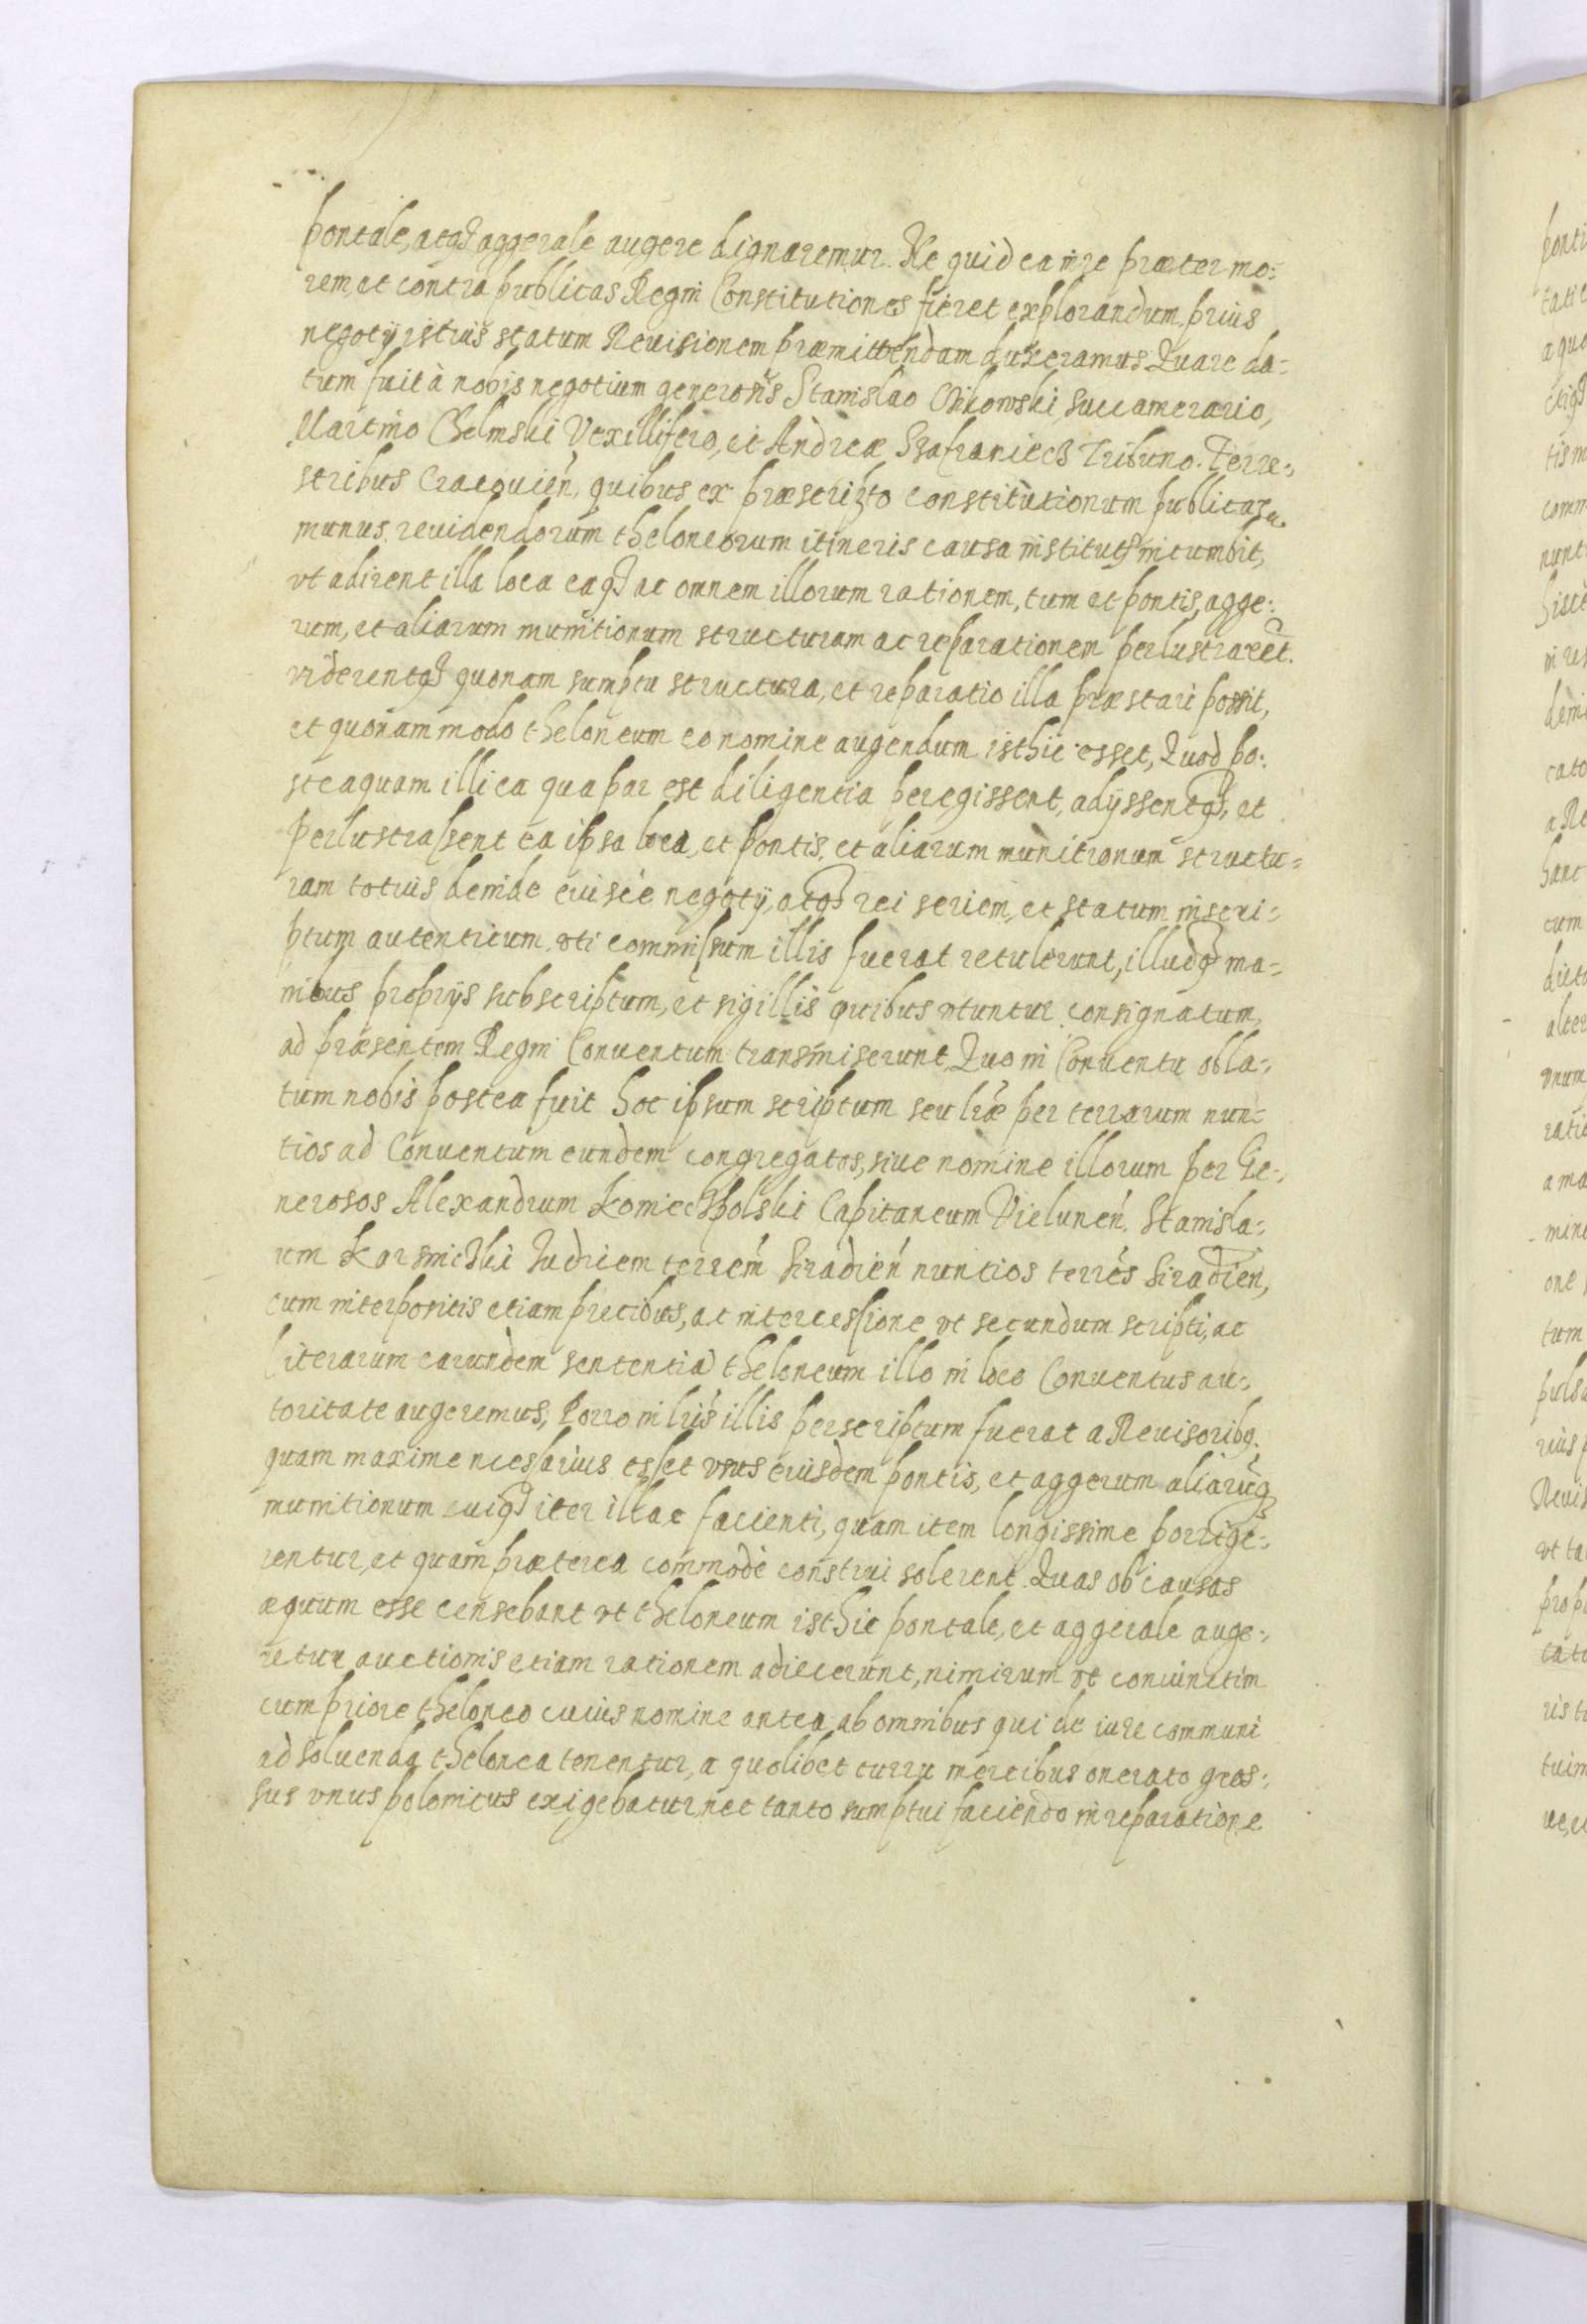 pontale, atq aggerale augere dignaremur. Ne quid ea in re præter mo:
rem, et contra publicas Regni Constitutiones fieret explorandum prius
negotij istius statum Reuisionem præmittendam duxeramus. Quare da:
tum fuit à nobis negotium generosis Stanislao Cikowski, succamerario,
Martino Chelmski Vexillifero, et Andreæ Szafraniecz Tribuno. Terre:
stribus Cracouień, quibus ex præscripto constitutionum publicaru
munus reuidendorum theloneorum itineris causa institut incumbit,
vt adirent illa loca eaq ac omnem illorum rationem, tum et pontis, agge:
rum, et aliarum munitionum structuram ac reparationem perlustraret.
viderentq quonam sumptu structura, et reparatio illa præstari possit,
et quonam modo theloneum eo nomine augendum isthic esset, Quod po:
steaquam illi ea qua par est diligentia peregissent, adijssentq, et
perlustrassent ea ipsa loca, et pontis, et aliarum munitionum structu=
ram totius deinde eiusce negotij, atq rei seriem, et statum, in scri:
ptum autenticum vti commissum illis fuerat retulerunt, illudq ma:
nibus proprijs subscriptum, et sigillis quibus vtuntur consignatum,
ad præsentem Regni Conuentum transmiserunt, Quo in Conuentu obla:
tum nobis postea fuit hoc ipsum scriptum seu lræ per terrarum nun=
tios ad Conuentum eundem congregatos, siue nomine illorum per Ge:
nerosos Alexandrum Koniecpolski Capitaneum Vieluneń. Stanisla:
um Karsnicki Iudicem terreń Siradień nuntios terrés Siradień,
cum interpositis etiam precibus, ac intercessione vt secundum scripti, ac
literarum earundem sententia theloneum illo in loco Conuentus au:
toritate augeremus, Porro in lris illis perscriptum fuerat a Reuisoribq
quam maxime necssarius esset vsus eiusdem pontis, et aggerum aliaruq
munitionum cuiq iter illac facienti, quam item longissime porrige:
rentur, et quam præterea commodè construi solerent. Quas ob causas
æquum esse censebant vt theloneum isthic pontale, et aggerale auge:
retur auctionis etiam rationem adiecerunt, nimirum vt coniunctim
cum priore theloneo cuius nomine antea ab omnibus qui de iure communi
ad soluenda thelonea tenentur, a quolibet curru mercibus onerato gros:
sus vnus polonicus exigebatur, nec tanto sumptui faciendo in reparatione